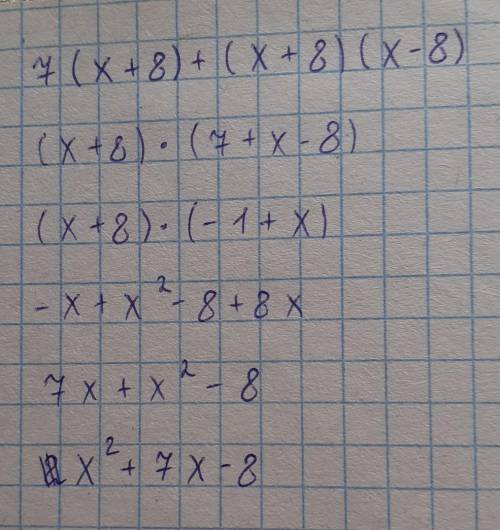 7(x+8)+(x+8)(x-8)
(x+8)·(7+x-8)
(x+8)·(-1+x)
-x+x²-8+8x
7x+x²-8
x²+7x-8